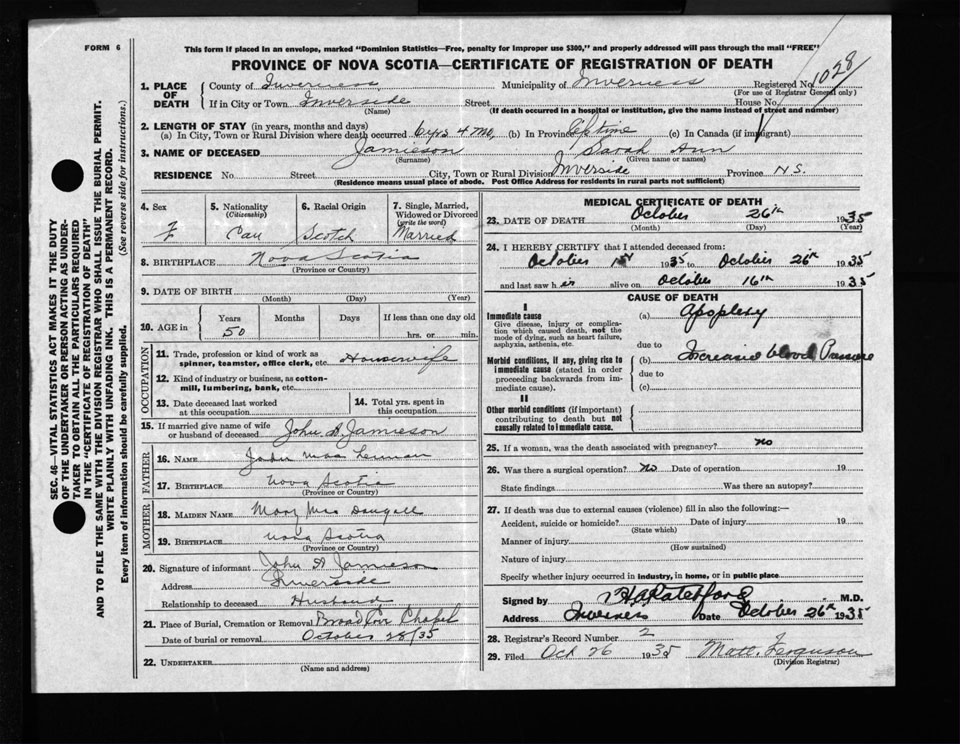 FORM 6
This form if placed in an envelope, marked "Dominion Statistics—Free, penalty for improper use $300," and properly addressed will pass through the mail "FREE"
PROVINCE OF NOVA SCOTIA—CERTIFICATE OF REGISTRATION OF DEATH
1. PLACE OF DEATH County of Inverness Municipality of Inverness Registered No. 1028
(For use of Registrar General only)
If in City or Town Inverside Street House No.
(Name) (If death occurred in a hospital or institution, give the name instead of street and number)
2. LENGTH OF STAY (in years, months and days)
(a) In City, Town or Rural Division where death occurred 6 yrs 4 mo, (b) In Province Lifetime (c) In Canada (if immigrant)
3. NAME OF DECEASED Jamieson Sarah Ann
(Surname) (Given name or names)
RESIDENCE No. Street City, Town or Rural Division Inverside Province N.S.
(Residence means usual place of abode. Post Office Address for residents in rural parts not sufficient)
SEC. 46—VITAL STATISTICS ACT MAKES IT THE DUTY
OF THE UNDERTAKER OR PERSON ACTING AS UNDER-
TAKER TO OBTAIN ALL THE PARTICULARS REQUIRED
IN THE "CERTIFICATE OF REGISTRATION OF DEATH"
AND TO FILE THE SAME WITH THE DIVISION REGISTRAR WHO SHALL ISSUE THE BURIAL PERMIT.
WRITE PLAINLY WITH UNFADING INK. THIS IS A PERMANENT RECORD.
Every item of information should be carefully supplied. (See reverse side for instructions.)
4. Sex F
5. Nationality (Citizenship) Can
6. Racial Origin Scotch
7. Single, Married, Widowed or Divorced (write the word) Married
8. BIRTHPLACE Nova Scotia
(Province or Country)
9. DATE OF BIRTH
(Month) (Day) (Year)
10. AGE in Years Months Days If less than one day old
50 hrs. or min.
OCCUPATION
11. Trade, profession or kind of work as spinner, teamster, office clerk, etc. Housewife
12. Kind of industry or business, as cotton-mill, lumbering, bank, etc.
13. Date deceased last worked at this occupation
14. Total yrs. spent in this occupation
15. If married give name of wife or husband of deceased John A Jamieson
FATHER
16. NAME John Mac
17. BIRTHPLACE Nova Scotia
(Province or Country)
MOTHER
18. MAIDEN NAME Mary Mac Dougall
19. BIRTHPLACE Nova Scotia
(Province or Country)
20. Signature of informant John A Jamieson
Address Inverside
Relationship to deceased Husband
21. Place of Burial, Cremation or Removal Broad Cove Chapel
Date of burial or removal October 28/35
22. UNDERTAKER
(Name and address)
MEDICAL CERTIFICATE OF DEATH
23. DATE OF DEATH October 26th 1935
(Month) (Day) (Year)
24. I HEREBY CERTIFY that I attended deceased from:
October 1st 1935 to October 26th 1935
and last saw h er alive on October 16th 1935
CAUSE OF DEATH
I
Immediate cause (a) Apoplexy
Give disease, injury or complication which caused death, not the mode of dying, such as heart failure, asphyxia, asthenia, etc.
due to
Morbid conditions, if any, giving rise to immediate cause (stated in order proceeding backwards from immediate cause). (b) Increased blood Pressure
due to
(c)
II
Other morbid conditions (if important) contributing to death but not causally related to immediate cause.
25. If a woman, was the death associated with pregnancy? no
26. Was there a surgical operation? No Date of operation 19
State findings Was there an autopsy?
27. If death was due to external causes (violence) fill in also the following:—
Accident, suicide or homicide? Date of injury 19
(State which)
Manner of injury
(How sustained)
Nature of injury
Specify whether injury occurred in industry, in home, or in public place
Signed by M.D.
Address Inverness Date October 26th 1935
28. Registrar's Record Number 2
29. Filed Oct 26 1935 Matt. Ferguson
(Division Registrar)